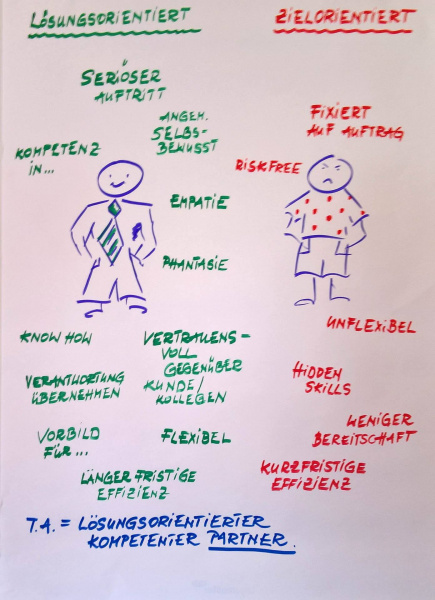 LÖSUNGSORIENTIERT
SERIÖSER
AUFTRITT
ANGEH.
SELBS-
BEWUSST
KOMPETENZ
IN...
EMPATIE
PHANTASIE
KNOW HOW
VERTRAUENS-
VOLL
GEGENÜBER
KUNDE/
KOLLEGEN
VERANTWORTUNG
ÜBERNEHMEN
VORBILD
FÜR...
FLEXIBEL
LÄNGERFRISTIGE
EFFIZIENZ
ZIELORIENTIERT
FIXIERT
AUF AUFTRAG
RISKFREE
UNFLEXIBEL
HIDDEN
SKILLS
WENIGER
BEREITSCHAFT
KURZFRISTIGE
EFFIZIENZ
T.A. = LÖSUNGSORIENTIERTER
KOMPETENTER PARTNER.